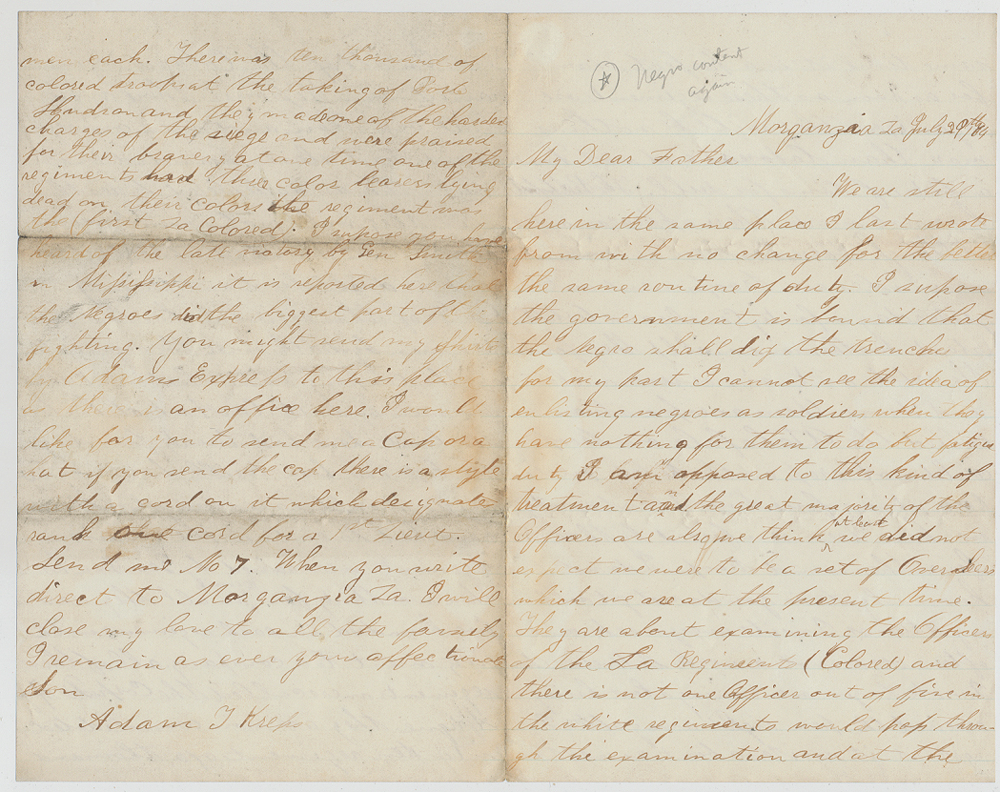 men each. There was ten thousand of
colored troops at the taking of Port
Hudson and they made one of the hardest
charges of the siege and were praised
for their bravery at one time one of the
regiments had three color bearers lying
dead on their colors the regiment was
the (first La Colored). I supose you have
heard of the late victory by Gen Smith
in Missisippi it is reported here that
the Negroes did the biggest part of the
fighting. You might send my shirts
by Adams Express to this place
as there is an office here. I would
like for you to send me a Cap or a
hat if you send the cap there is a style
with a cord on it which designate
rank one cord for a 1st Lieut.
Send me No 7. When you write
direct to Morganzia La. I will
close my love to all the family
I remain as ever your affectionate
Son
Adam J Kreps
Negro content
again
Morganzia La July 29th/64
My Dear Father
We are still
here in the same place I last wrote
from with no change for the better
the same routine of duty. I supose
the government is bound that
the Negro shall dig the trenches
for my part I cannot see the idea of
enlisting negroes as soldiers when they
have nothing for them to do but fatigue
duty I am opposed to this kind of
treatment and the great majority of the
Officers are also we think at least we did not
expect we were to be a set of Overseers
which we are at the present time.
They are about examining the Officers
of the La Regiments (Colored) and
there is not one Officer out of five in
the white regiments would pass throu-
gh the examination and at the